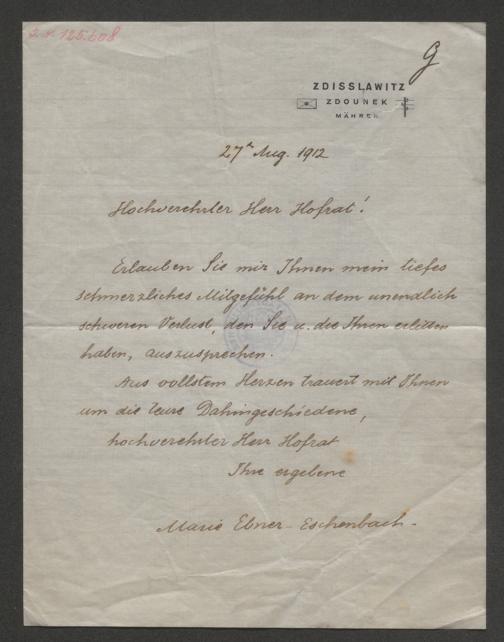 I.N. 125.608
G
ZDISSLAWITZ
ZDOUNEK
MÄHREN
27ᵗ Aug. 1912
Hochverehrter Herr Hofrat!
Erlauben Sie mir Ihnen mein tiefes
schmerzliches Mitgefühl an dem unendlich
schweren Verlust, den Sie u. die Ihren erlitten
haben, auszusprechen.
Aus vollstem Herzen trauert mit Ihnen
um die teure Dahingeschiedene,
hochverehrter Herr Hofrat
Ihre ergebene
Marie Ebner-Eschenbach.